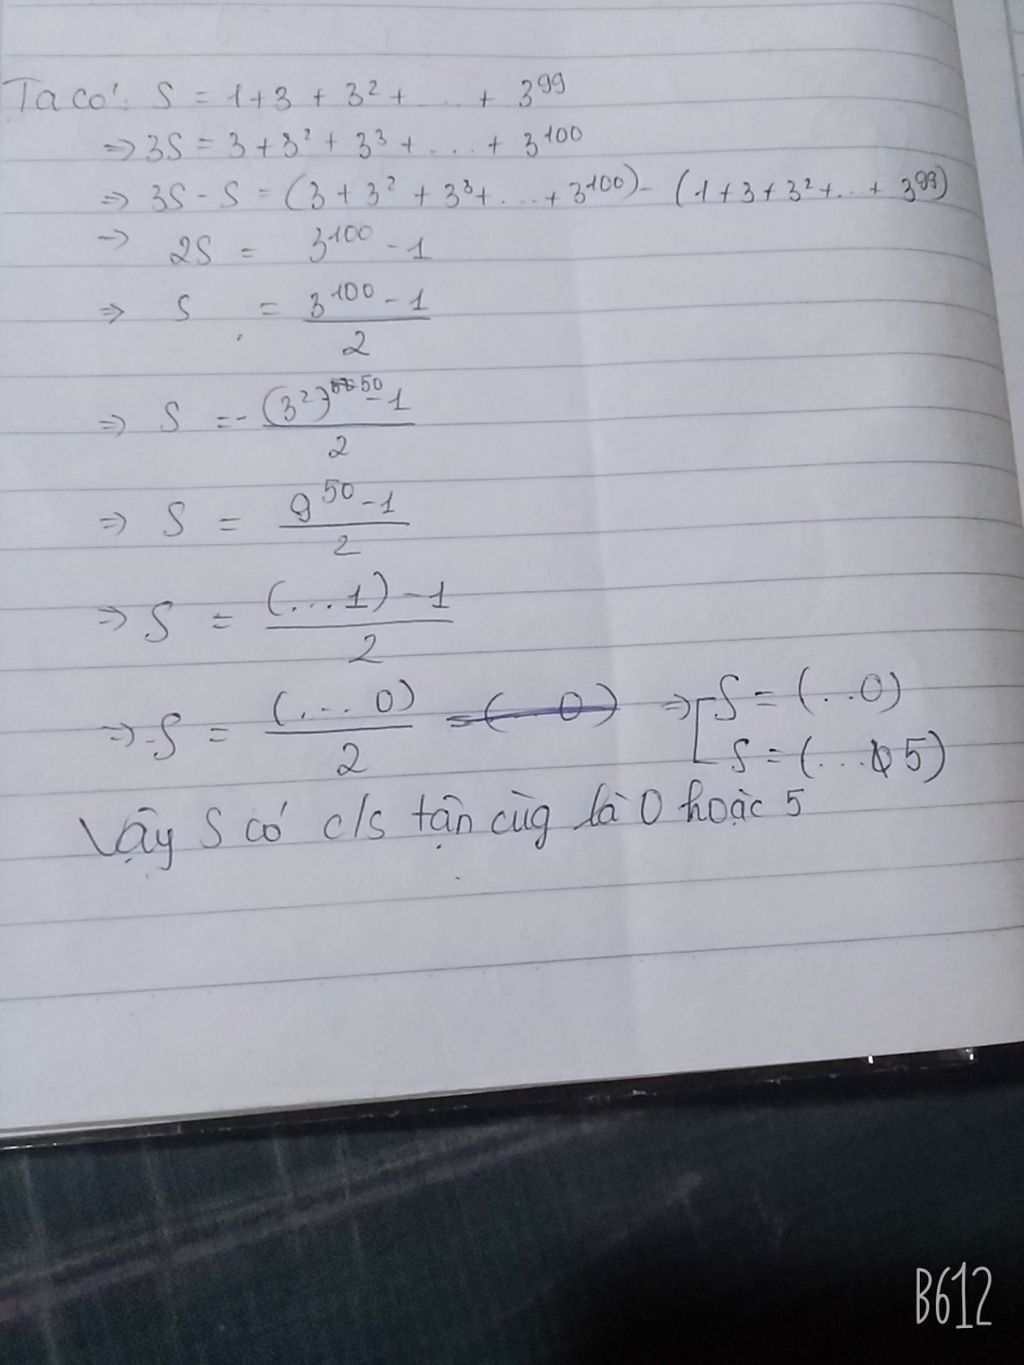 Ta có: S = 1+3 + 3² + ... + 3⁹⁹
=> 3S = 3+3² + 3³ + ... + 3¹⁰⁰
=> 3S - S = (3 + 3² + 3³+ ... + 3¹⁰⁰) - (1+3+3²+...+ 3⁹⁹)
-> 2S = 3¹⁰⁰ - 1
=> S = (3¹⁰⁰ - 1)/2
=> S = ((3²)⁵⁰ - 1)/2
=> S = (9⁵⁰ - 1)/2
=> S = ((...1) - 1)/2
=> S = (...0)/2 =(...0) => [ S = (...0)
S = (...5)
Vậy S có c/s tận cùg là 0 hoặc 5
B612